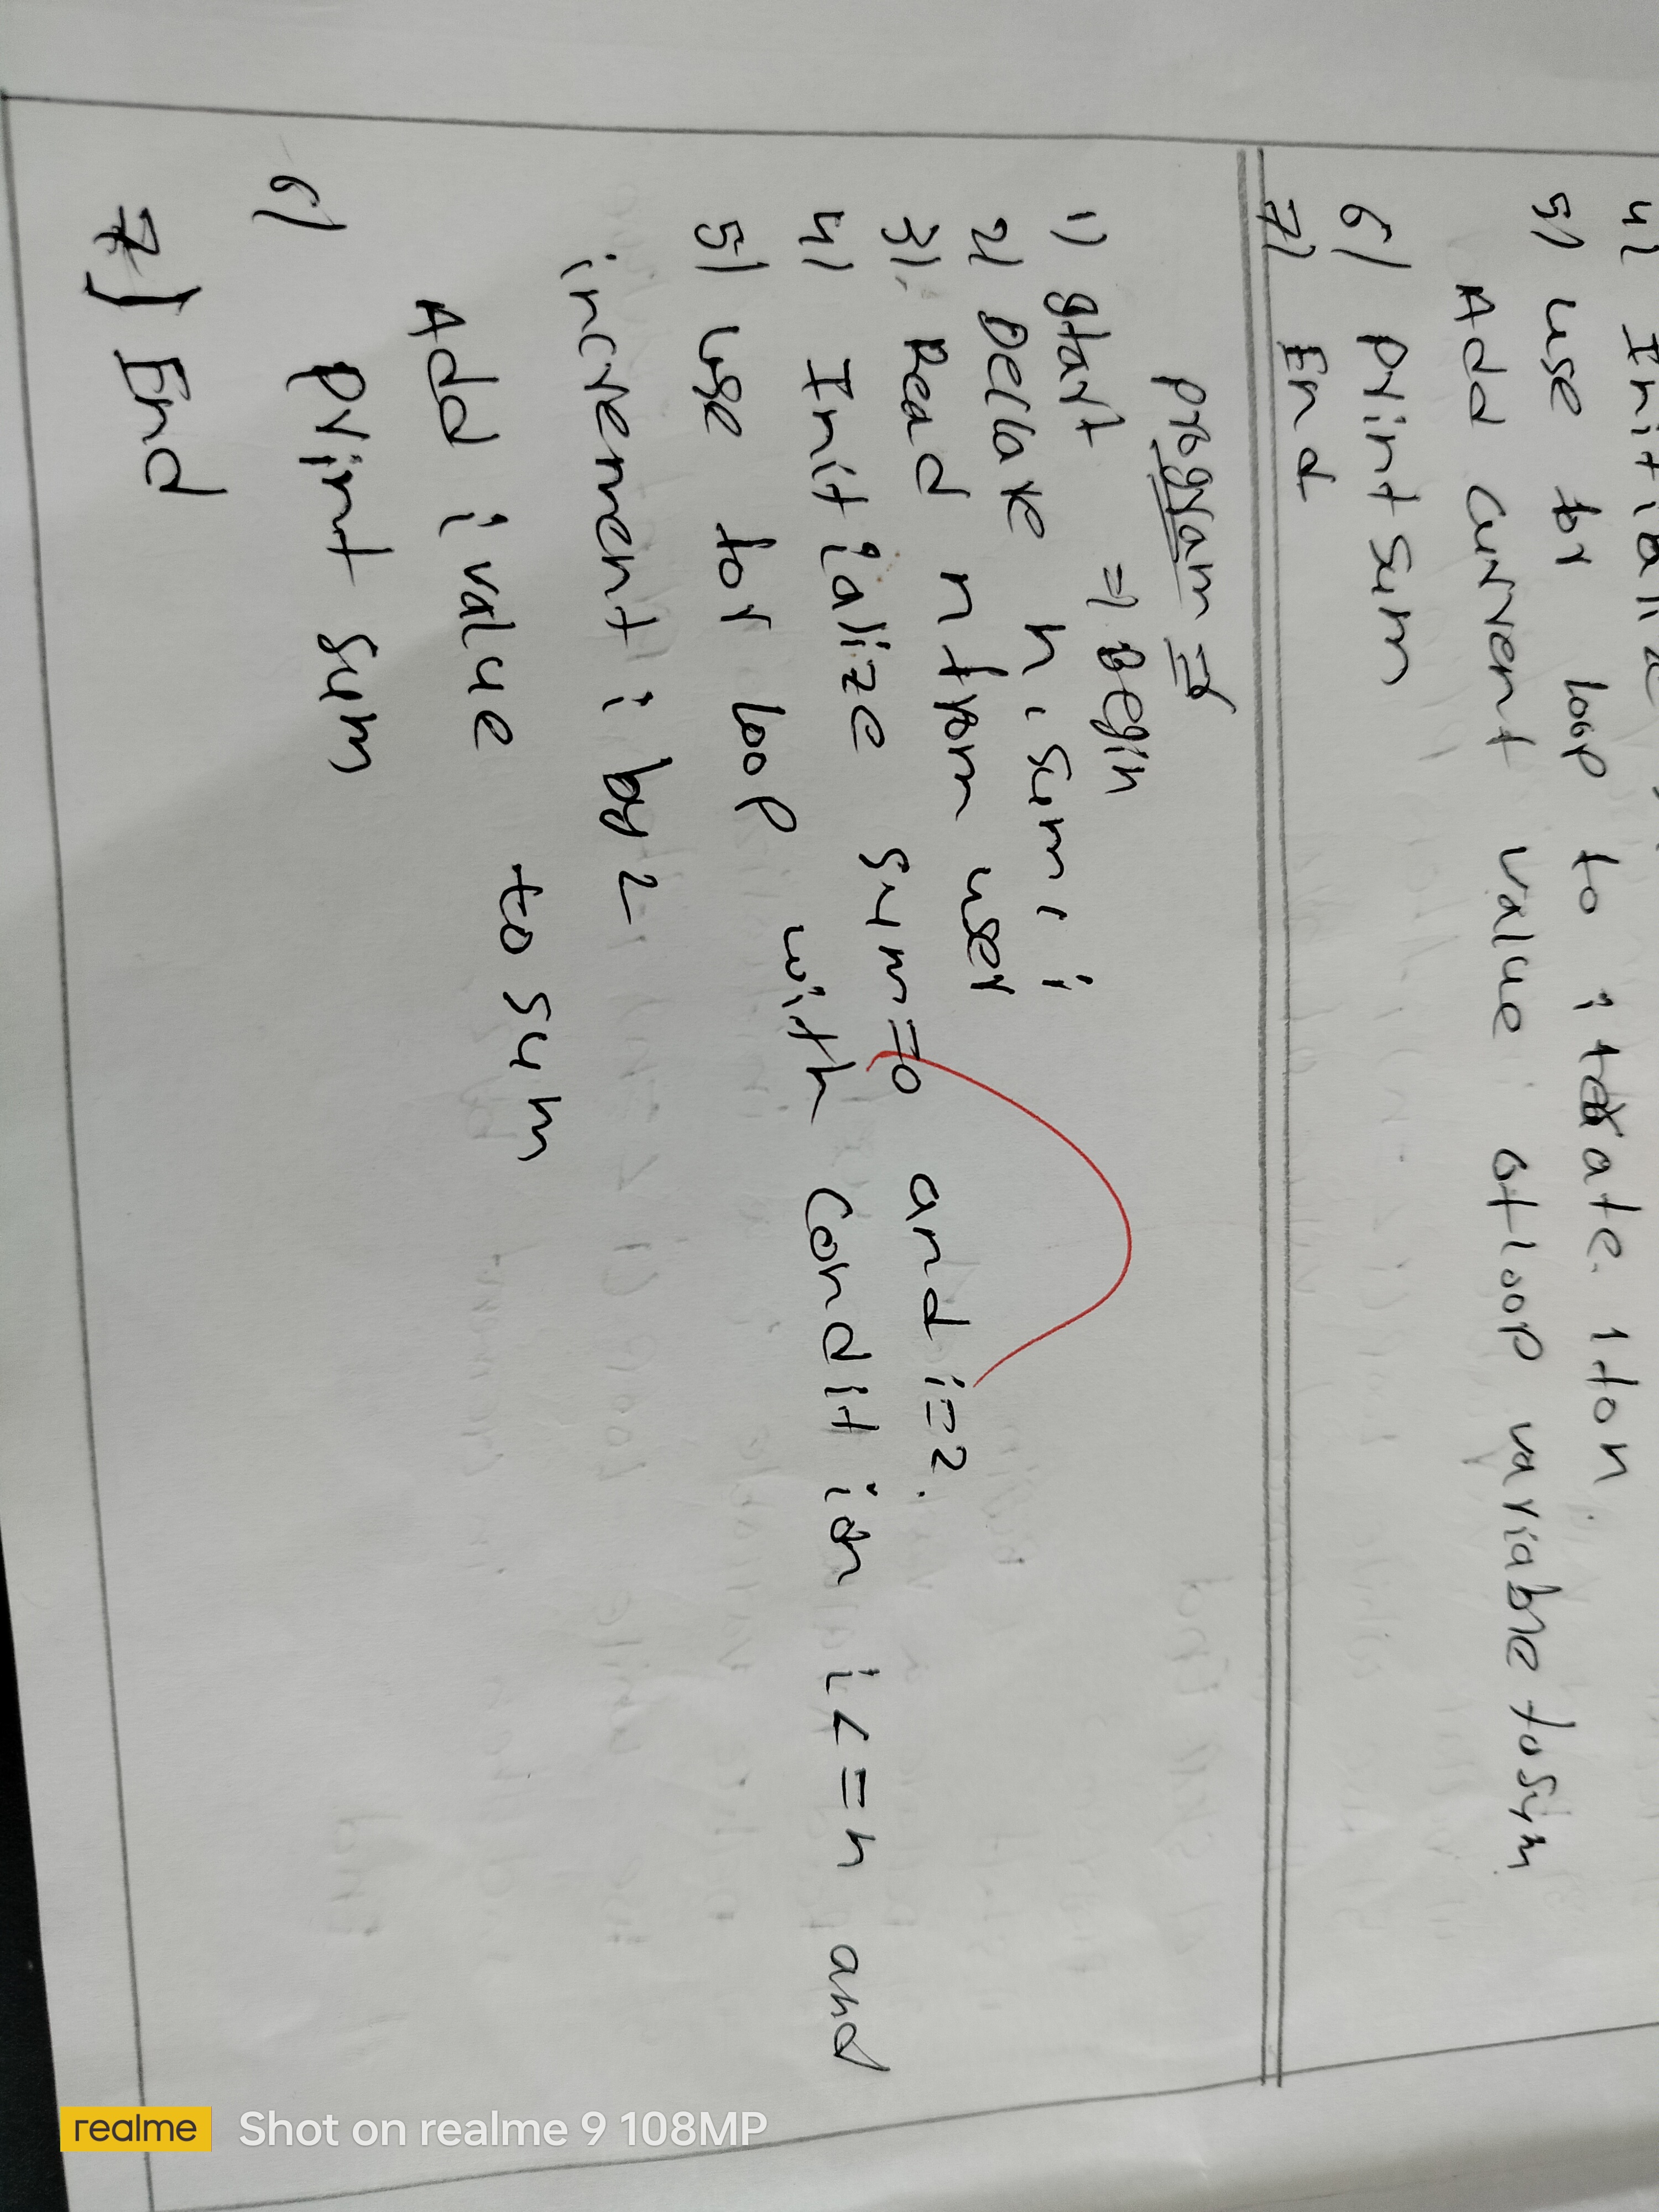 4) Initialize
5) use for loop to iterate. 1 to n
Add current value of loop variable to sum
6) print sum
7) End
program =>
1) start => Begin
2) Declare n, sum, i
3) Read n from user
4) Initialize sum=0 and i=2.
5) use for loop with condition i<=n and
increment i by 2
Add i value to sum
6) print sum
7) End
realme Shot on realme 9 108MP